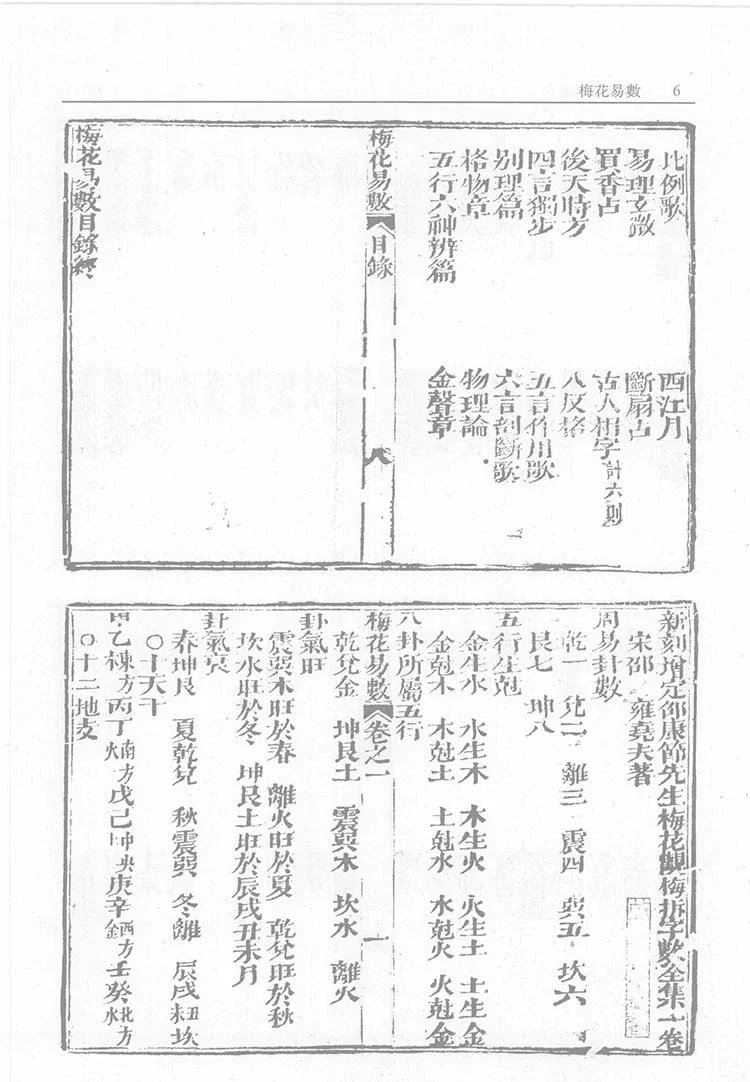 梅花易數 6
比例歌 西江月
易理玄微 斷扇占
買香占 古人相字計六則
後天時方 八反格
四言獨步 五言作用歌
別理篇 六言剖斷歌
格物章 物理論
五行六神辨篇 金聲章
梅花易數 目錄 八
梅花易數目錄終
新刻增定邵康節先生梅花觀梅拆字數全集一卷
宋邵 雍堯夫著
周易卦數
乾一 兌二 離三 震四 巽五 坎六
艮七 坤八
五行生剋
金生水 水生木 木生火 火生土 土生金
金尅木 木尅土 土尅水 水尅火 火尅金
八卦所屬五行
梅花易數 卷之一 一
乾兌金 坤艮土 震巽木 坎水 離火
卦氣旺
震巽木旺於春 離火旺於夏 乾兌旺於秋
坎水旺於冬 坤艮土旺於辰戌丑未月
卦氣衰
春坤艮 夏乾兌 秋震巽 冬離 辰戌丑坎
○十天干
甲乙東方丙丁南方火戊己中央庚辛西方金壬癸北方水
○十二地支